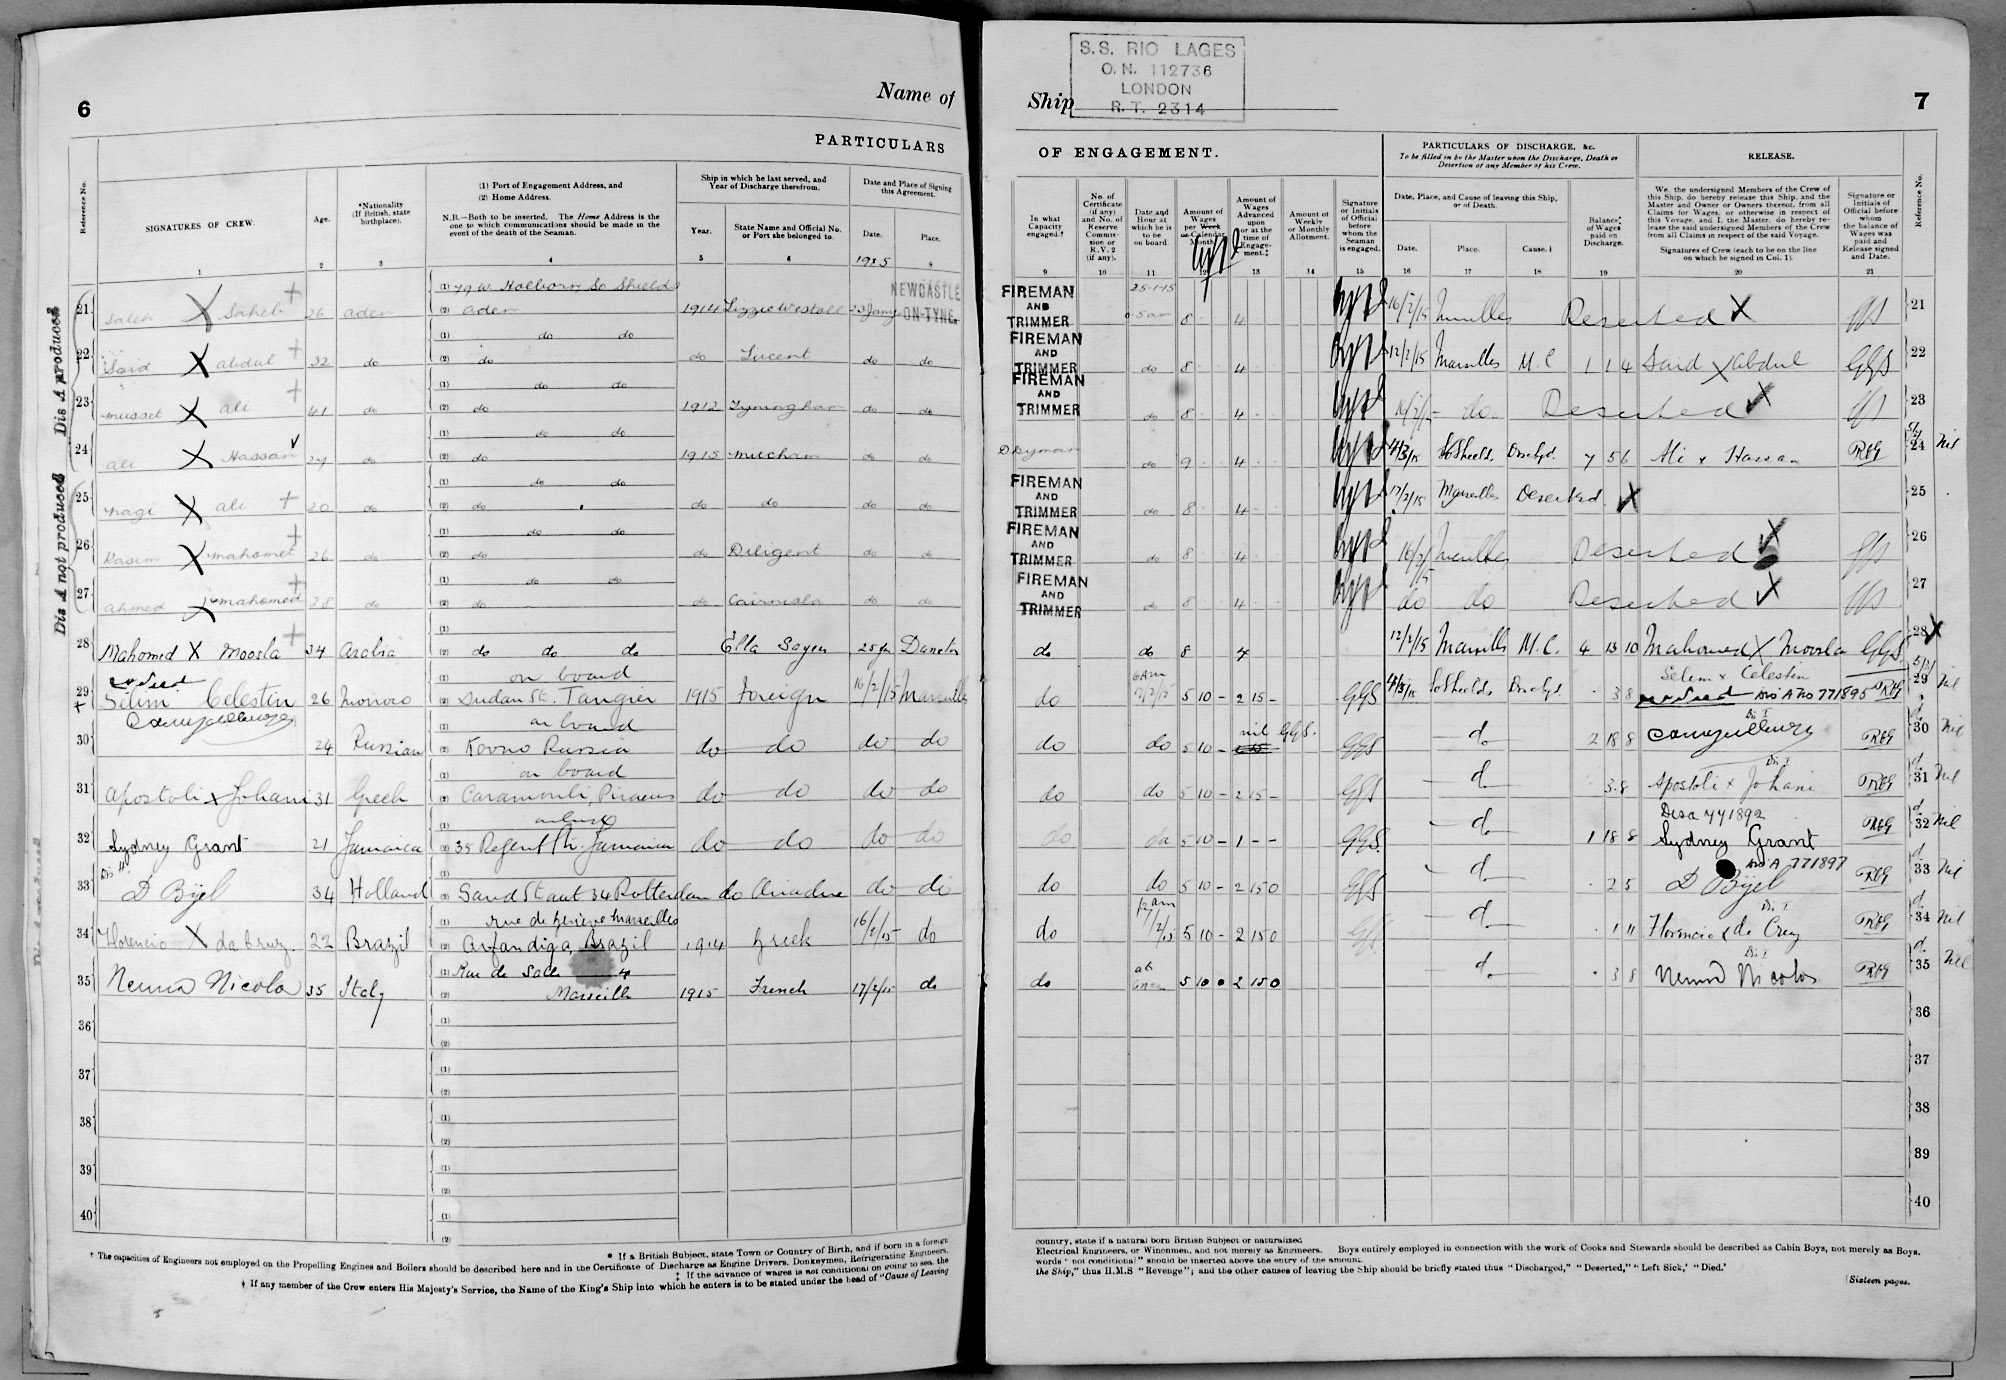 6
Name of
PARTICULARS
Reference No.
SIGNATURES OF CREW.
Age.
*Nationality
(If British, state
birthplace).
(1) Port of Engagement Address, and
(2) Home Address.
N.B.—Both to be inserted. The Home Address is the
one to which communications should be made in the
event of the death of the Seaman.
Ship in which he last served, and
Year of Discharge therefrom.
Year.
State Name and Official No.
or Port she belonged to.
Date and Place of Signing
this Agreement.
Date.
Place.
1 2 3 4 5 6 1915 8
Dis A produced
Dis A not produced
(1) 79 W. Holborn So Shields
21 Saleh X Saheli 26 Aden (2) Aden 1914 Lizzie Westoll 23 Jany NEWCASTLE-ON-TYNE.
(1) do do
22 Said X Abdul 32 do (2) do do Lucent do do
(1) do do
23 Musset X Ali 41 do (2) do 1912 Tyningham do do
(1) do do
24 Ali X Hassan 27 do (2) do 1915 do do
(1) do do
25 Nagi X Ali 20 do (2) do do do do do
(1) do do
26 Kasim X Mahomet 26 do (2) do do Diligent do do
(1) do do
27 Ahmed X Mahomed 28 do (2) do do do do
(1)
28 Mahomed X Moosla 34 Arabia (2) do do do Ella Sayer 25
(1) on board
29 Selim Celestin 26 (2) Sudan St. Tangier 1915 Foreign 16/2/15 Marseilles
(1) on board
30 24 Russian (2) Kovno Russia do do do do
(1) on board
31 Apostoli x Johani 31 Greek (2) Piraeus do do do do
(1)
32 Sydney Grant 21 Jamaica (2) 35 Regent St. Jamaica do do do do
(1)
33 D Bijl 34 Holland (2) Sand Straat 34 Rotterdam do Ariadne do do
(1) Marseilles
34 Florencio X da Cruz. 22 Brazil (2) Brazil 1914 Greek 16/2/15 do
(1) Rue de
35 Nenna Nicola 35 Italy (2) Marseille 1915 French 17/2/15 do
36 (1)
(2)
37 (1)
(2)
38 (1)
(2)
39 (1)
(2)
40 (1)
(2)
* If a British Subject, state Town or Country of Birth, and if born in a foreign
† The capacities of Engineers not employed on the Propelling Engines and Boilers should be described here and in the Certificate of Discharge as Engine Drivers, Donkeymen, Refrigerating Engineers,
‡ If the advance of wages is not conditional on going to sea, the
† If any member of the Crew enters His Majesty's Service, the Name of the King's Ship into which he enters is to be stated under the head of "Cause of Leaving
Ship
S.S. RIO LAGES
O.N. 112736
LONDON
R.T. 2314
7
OF ENGAGEMENT.
PARTICULARS OF DISCHARGE, &c.
To be filled in by the Master upon the Discharge, Death or
Desertion of any Member of his Crew.
RELEASE.
In what
Capacity
engaged.†
No. of
Certificate
(if any)
and No. of
Reserve
Commis-
sion or
R.V. 2
(if any).
Date and
Hour at
which he is
to be
on board.
Amount of
Wages
per Week
or Calendar
Month.
Amount of
Wages
Advanced
upon
or at the
time of
Engage-
ment.‡
Amount of
Weekly
or Monthly
Allotment.
Signature
or Initials
of Official
before
whom the
Seaman
is engaged.
Date, Place, and Cause of leaving this Ship,
or of Death.
Date.
Place.
Cause.‡
Balance
of Wages
paid on
Discharge.
We, the undersigned Members of the Crew of
this Ship, do hereby release this Ship, and the
Master and Owner or Owners thereof, from all
Claims for Wages, or otherwise in respect of
this Voyage, and I, the Master, do hereby re-
lease the said undersigned Members of the Crew
from all Claims in respect of the said Voyage.
Signatures of Crew (each to be on the line
on which he signed in Col. 1).
Signature or
Initials of
Official before
whom
the balance of
Wages was
paid and
Release signed
and Date.
Reference No.
9 10 11 12 13 14 15 16 17 18 19 20 21
FIREMAN AND TRIMMER 25-1-15 8 4 16/2/15 Marseilles Deserted X 21
FIREMAN AND TRIMMER do 8 4 12/2/15 Marseilles M.C. 1 1 4 Said X Abdul GGS 22
FIREMAN AND TRIMMER do 8 4 do Deserted X 23
Dkyman do 9 4 4/3/15 So Shields Dischgd. 7 5 6 Ali x Hassan RHG 24 Nil
FIREMAN AND TRIMMER do 8 4 17/2/15 Marseilles Deserted X 25
FIREMAN AND TRIMMER do 8 4 16/2/15 Marseilles Deserted X 26
FIREMAN AND TRIMMER do 8 4 do do Deserted X 27
do do 8 4 12/2/15 Marseilles M.C. 4 13 10 Mahomed X Moosla GGS 28 X
Selim x Celestin
do 6 AM 5 10 - 2 15 - GGS 4/3/15 So Shields Dischgd. 3 8 Dis A No 771895 RHG 29 Nil
do do 5 10 - nil GGS. GGS do 2 18 8 Dis I RHG 30 Nil
do do 5 10 - 2 15 - GGS do 3 8 Apostoli x Johani Dis I RHG 31 Nil
Dis a 771892
do do 5 10 - 1 - - GGS. do 1 18 8 Sydney Grant RHG 32 Nil
Dis A 771897
do do 5 10 - 2 15 0 GGS do 2 5 D Bijl RHG 33 Nil
do 5 10 - 2 15 0 do 1 11 Florencio x da Cruz Dis I RHG 34 Nil
do 5 10 0 2 15 0 do 3 8 Nenna Nicola Dis I RHG 35 Nil
36
37
38
39
40
country, state if a natural born British Subject or naturalized
Electrical Engineers, or Winchmen, and not merely as Engineers. Boys entirely employed in connection with the work of Cooks and Stewards should be described as Cabin Boys, not merely as Boys.
words "not conditional" should be inserted above the entry of the amount.
the Ship," thus H.M.S "Revenge"; and the other causes of leaving the Ship should be briefly stated thus "Discharged," "Deserted," "Left Sick,' "Died.'
Sixteen pages.